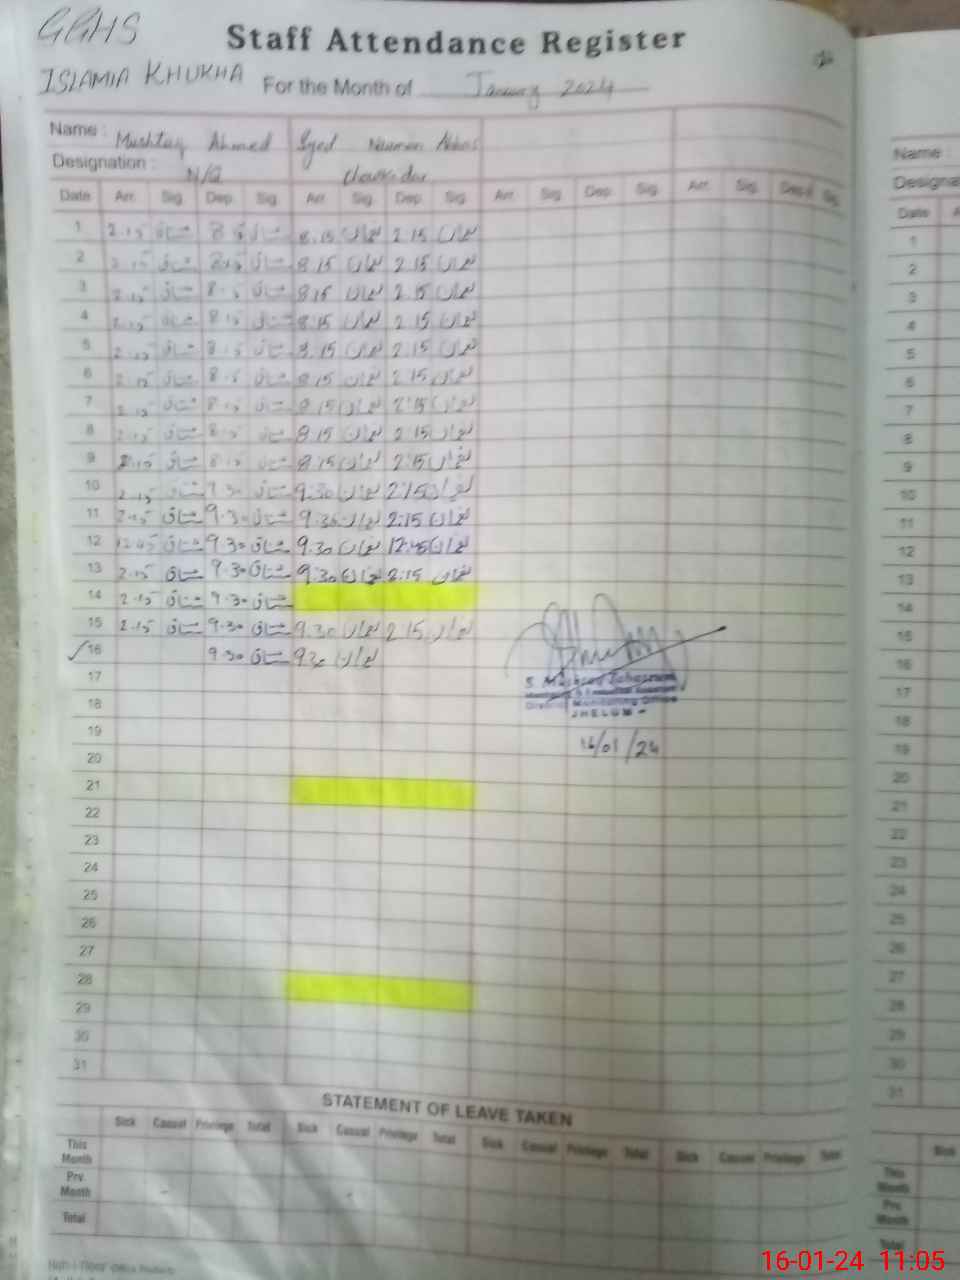 GGHS
Staff Attendance Register
ISLAMIA KHUKHA
For the Month of January 2024
Name : Mushtaq Ahmed Syed Nauman Abbas
Designation : N/Q Chowkidar
Date Arr. Sig. Dep. Sig. Arr. Sig. Dep. Sig. Arr. Sig. Dep. Sig. Arr. Sig. Dep. Sig.
1 2.15 مشتاق 8.15 مشتاق 8.15 نعمان 2.15 نعمان
2 2.15 مشتاق 8.15 مشتاق 8.15 نعمان 2.15 نعمان
3 2.15 مشتاق 8.15 مشتاق 8.15 نعمان 2.15 نعمان
4 2.15 مشتاق 8.15 مشتاق 8.15 نعمان 2.15 نعمان
5 2.15 مشتاق 8.15 مشتاق 8.15 نعمان 2.15 نعمان
6 2.15 مشتاق 8.15 مشتاق 8.15 نعمان 2.15 نعمان
7 2.15 مشتاق 8.15 مشتاق 8.15 نعمان 2:15 نعمان
8 2.15 مشتاق 8.15 مشتاق 8.15 نعمان 2:15 نعمان
9 2.15 مشتاق 8.15 مشتاق 8.15 نعمان 2:15 نعمان
10 2.15 مشتاق 9.30 مشتاق 9.30 نعمان 2:15 نعمان
11 2.15 مشتاق 9.30 مشتاق 9.30 نعمان 2:15 نعمان
12 12.45 مشتاق 9.30 مشتاق 9.30 نعمان 12:45 نعمان
13 2.15 مشتاق 9.30 مشتاق 9:30 نعمان 2:15 نعمان
14 2.15 مشتاق 9.30 مشتاق
15 2.15 مشتاق 9.30 مشتاق 9.30 نعمان 2.15 نعمان
16 9.30 مشتاق 9.30 نعمان
17
18
19
20
21
22
23
24
25
26
27
28
29
30
31
District Monitoring Office
JHELUM
16/01/24
STATEMENT OF LEAVE TAKEN
Sick Casual Privilege Total Sick Casual Privilege Total Sick Casual Privilege Total Sick Casual Privilege Total
This Month
Prv. Month
Total
Name :
Designa
Date A
1
2
3
4
5
6
7
8
9
10
11
12
13
14
15
16
17
18
19
20
21
22
23
24
25
26
27
28
29
30
31
Sick
This Month
Prv. Month
Total
16-01-24 11:05